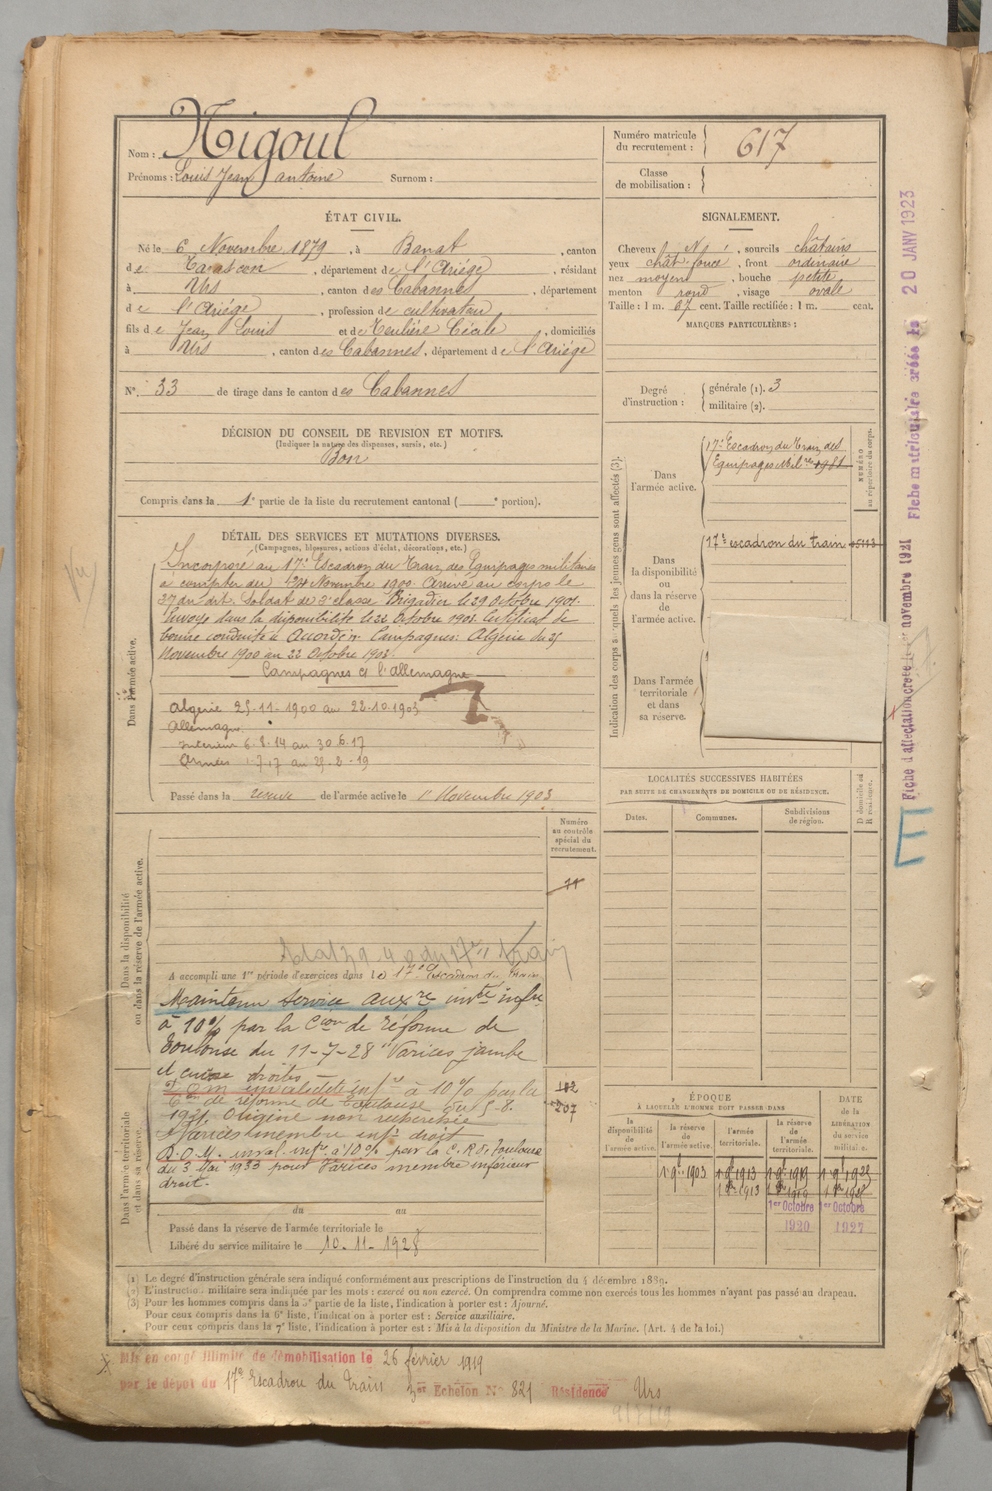 Nom : Nigoul
Prénoms : Louis Jean antoine Surnom :
Numéro matricule du recrutement : 617
Classe de mobilisation :
ÉTAT CIVIL.
Né le 6 Novembre 1879, à Banat, canton
de Tarascon, département de l'Ariége, résidant
à Urs, canton des Cabannes, département
de l'Ariége, profession de cultivateur
fils de Jean Louis et de Teulière Cécile, domiciliés
à Urs, canton des Cabannes, département de l'Ariége
N° 33 de tirage dans le canton des Cabannes
SIGNALEMENT.
Cheveux , sourcils châtains
yeux chât foncé, front ordinaire
nez moyen, bouche petite
menton rond, visage ovale
Taille : 1 m. 67 cent. Taille rectifiée : 1 m. cent.
MARQUES PARTICULIÈRES :
Degré d'instruction : générale (1). 3
militaire (2).
DÉCISION DU CONSEIL DE REVISION ET MOTIFS.
(Indiquer la nature des dispenses, sursis, etc.)
Bon
Compris dans la 1e partie de la liste du recrutement cantonal ( e portion).
DÉTAIL DES SERVICES ET MUTATIONS DIVERSES.
(Campagnes, blessures, actions d'éclat, décorations, etc.)
Dans l'armée active.
Incorporé au 17e Escadron du Train des Equipages militaires
à compter du 14 Novembre 1900. Arrivé au corps le
dit. Soldat de 2e classe Brigadier le 29 Octobre 1901.
Envoyé dans la disponibilité le 22 Octobre 1903. Certificat de
bonne conduite Accordé. Campagnes: Algérie du 25
Novembre 1900 au 22 Octobre 1903.
Campagnes ct l'allemagne
Algérie 25-11-1900 au 22-10-1903
Allemagne
Intérieur 6.8.14 au 30.6.17
Armées 1.7.17 au 25-2-19
Passé dans la reserve de l'armée active le 1er Novembre 1903
Indication des corps auxquels les jeunes gens sont affectés (3).
NUMÉRO au répertoire du corps.
Dans l'armée active.
17e Escadron du Train des
Equipages Milres 1981
Dans la disponibilité ou dans la réserve de l'armée active.
17e escadron du train
Dans l'armée territoriale et dans sa réserve.
LOCALITÉS SUCCESSIVES HABITÉES
PAR SUITE DE CHANGEMENTS DE DOMICILE OU DE RÉSIDENCE.
Dates. Communes. Subdivisions de région. D domicile ou R résidence.
Dans la disponibilité ou dans la réserve de l'armée active.
Numéro au contrôle spécial du recrutement.
11
A accompli une 1re période d'exercices dans le 17e Escadron du Train
Maintenu service auxre invté infre
à 10% par la Cion de réforme de
Toulouse du 11-7-28 "Varices jambe
et cuisse droites
Dans l'armée territoriale et dans sa réserve.
R.D.M. invalidité infre à 10% par la
Con de réforme de Toulouse du 5-8-
1931 Origine non recherchée
Varices membre infr droit
R.D.M. inval. infre à 10% par la C.R de Toulouse
du 3 Mai 1933 pour Varices membre inférieur
droit.
182
207
du au
Passé dans la réserve de l'armée territoriale le
Libéré du service militaire le 10-11-1928
ÉPOQUE
À LAQUELLE L'HOMME DOIT PASSER DANS
la disponibilité de l'armée active. la réserve de l'armée active. l'armée territoriale. la réserve de l'armée territoriale.
DATE de la LIBÉRATION du service militaire.
1903 1913 1919
1913 1919
1er Octobre 1er Octobre
1920 1927
(1) Le degré d'instruction générale sera indiqué conformément aux prescriptions de l'instruction du 4 décembre 1889.
(2) L'instruction militaire sera indiquée par les mots : exercé ou non exercé. On comprendra comme non exercés tous les hommes n'ayant pas passé au drapeau.
(3) Pour les hommes compris dans la 5e partie de la liste, l'indication à porter est : Ajourné.
Pour ceux compris dans la 6e liste, l'indication à porter est : Service auxiliaire.
Pour ceux compris dans la 7e liste, l'indication à porter est : Mis à la disposition du Ministre de la Marine. (Art. 4 de la loi.)
Mis en congé illimité de démobilisation le 26 février 1919
par le dépôt du 17e Escadron du Train 3er Echelon N° 821 Résidence Urs
Fiche d'affectation créée le 1er novembre 1921
Fiche matriculaire créée le 20 JANV 1923
E